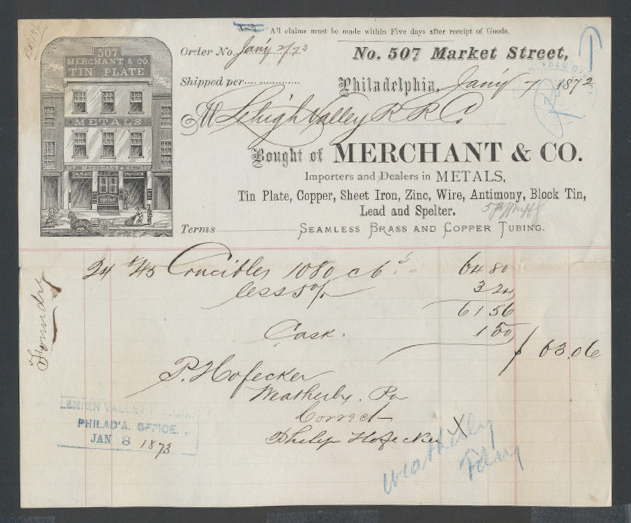 All claims must be made within Five days after receipt of Goods.
Order No. Jan'y 2/73
No. 507 Market Street,
Shipped per
Philadelphia, Jan'y 7 1872
507
MERCHANT & CO.
TIN PLATE
METALS
M Lehigh Valley R. R. Co.
Bought of MERCHANT & CO.
Importers and Dealers in METALS,
Tin Plate, Copper, Sheet Iron, Zinc, Wire, Antimony, Block Tin,
Lead and Spelter.
Terms SEAMLESS BRASS AND COPPER TUBING.
24 #45 Crucibles 1080 c 6 64 80
less 5% 3 24
61 56
Cask. 1 50
$ 63.06
Foundry
P. Hofecker
Weatherly Pa
Correct
Philip Hofecker
LEHIGH VALLEY
PHILAD'A. OFFICE.
JAN 8 1873
Weatherly